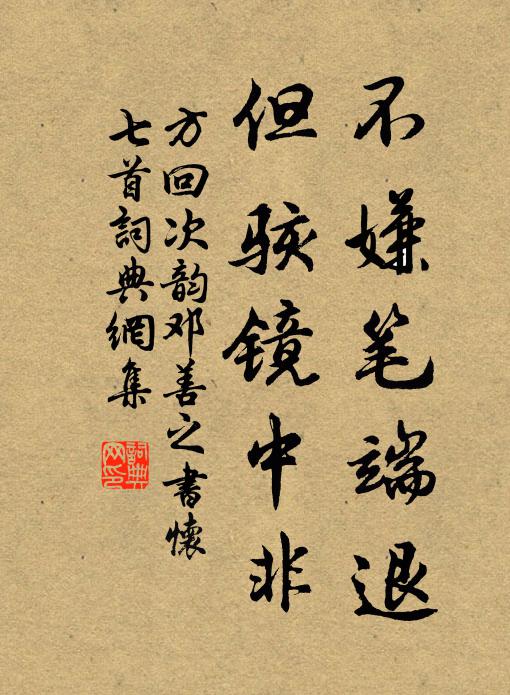 不嫌笔端退
但骇镜中非
方回次韵邓善之書懷
七首詞典網集
詞典网印